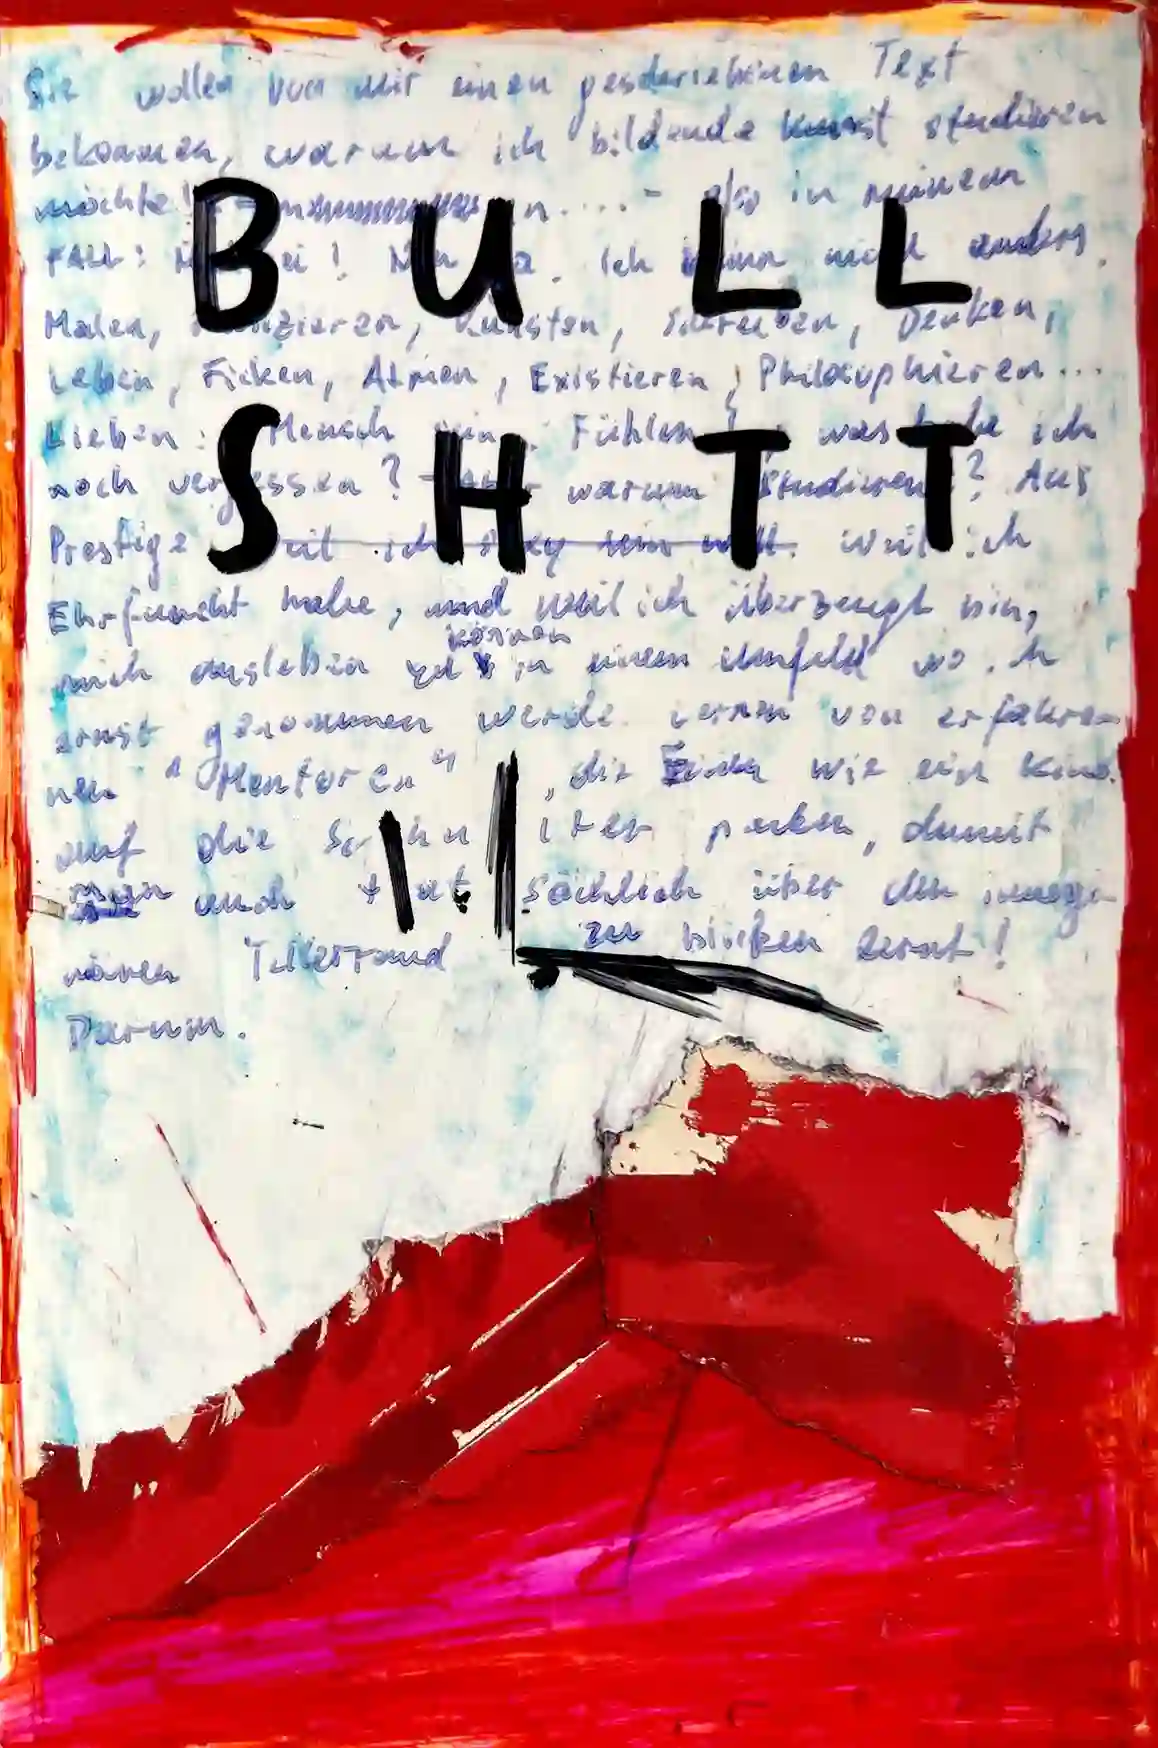 Sie wollen von mir einen geschriebenen Text
bekommen, warum ich bildende Kunst studieren
möchte! also in meinem
BULL
FALL: ! Ich nicht anders.
Malen, Kunsten, Schreiben, Denken,
Leben, Ficken, Atmen, Existieren, Philosophieren...
Lieben: Mensch Fühlen, was habe ich
SHTT
noch vergessen? Aber warum studieren? Aus
Prestige weil ich sexy sein will. weil ich
Ehrfurcht habe, und weil ich überzeugt bin,
können
mich ausleben zu in einem Umfeld wo ich
ernst genommen werde. Lernen von erfahre-
nen "Mentoren", die Einen wie ein Kind
auf die packen, damit
man auch tatsächlich über den imagi-
nären Tellerrand zu blicken lernt!
Darum.